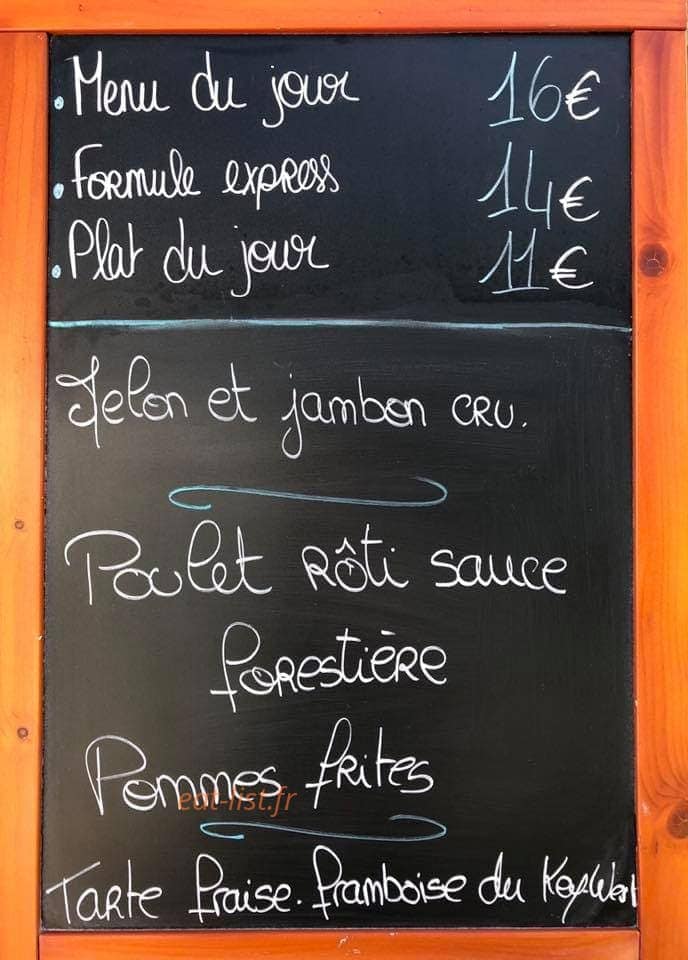 Menu du jour 16€
Formule express 14€
Plat du jour 11€
Melon et jambon cru.
Poulet rôti sauce
forestière
Pommes frites
eat-list.fr
Tarte fraise. framboise du Key West